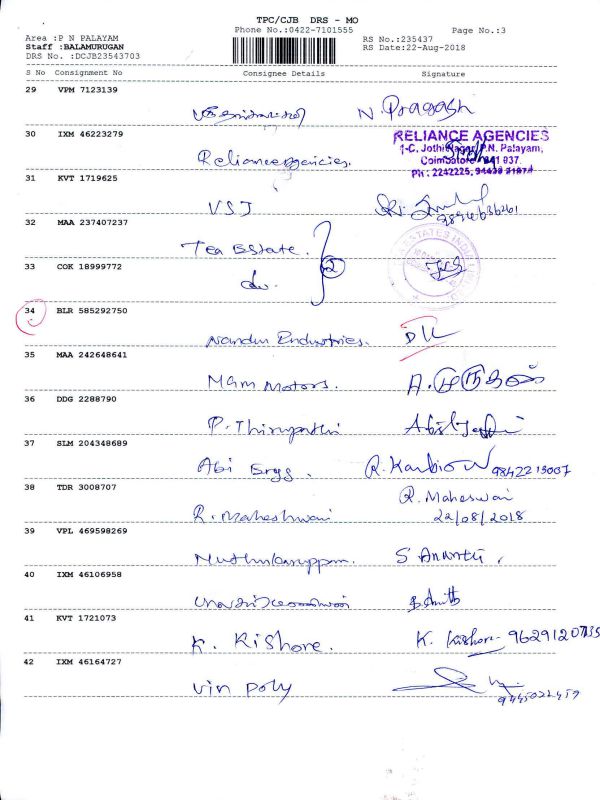 TPC/CJB DRS - MO
Phone No.:0422-7101555
Page No.:3
Area :P N PALAYAM
RS No.:235437
Staff :BALAMURUGAN
RS Date:22-Aug-2018
DRS No. :DCJB23543703
S No Consignment No Consignee Details Signature
29 VPM 7123139
N. Pragash
30 IXM 46223279
Reliance agencies.
RELIANCE AGENCIES
1-C, Jothi Nagar, P.N. Palayam,
Coimbatore 641 037.
Ph : 2242225,
31 KVT 1719625
VSJ
Sri
32 MAA 237407237
Tea Estate.
33 COK 18999772
do
2
34 BLR 585292750
Nandu Industries. DIL
35 MAA 242648641
Mam Motors. A. முருகன்
36 DDG 2288790
P. Thirupathi
37 SLM 204348689
Abi Engg. R.
38 TDR 3008707
R. Maheswari
R. Maheshwari 22/08/2018
39 VPL 469598269
Muthukaruppan. S Ananthi.
40 IXM 46106958
41 KVT 1721073
K. Kishore. K. Kishore 9629120735
42 IXM 46164727
Vin Poly